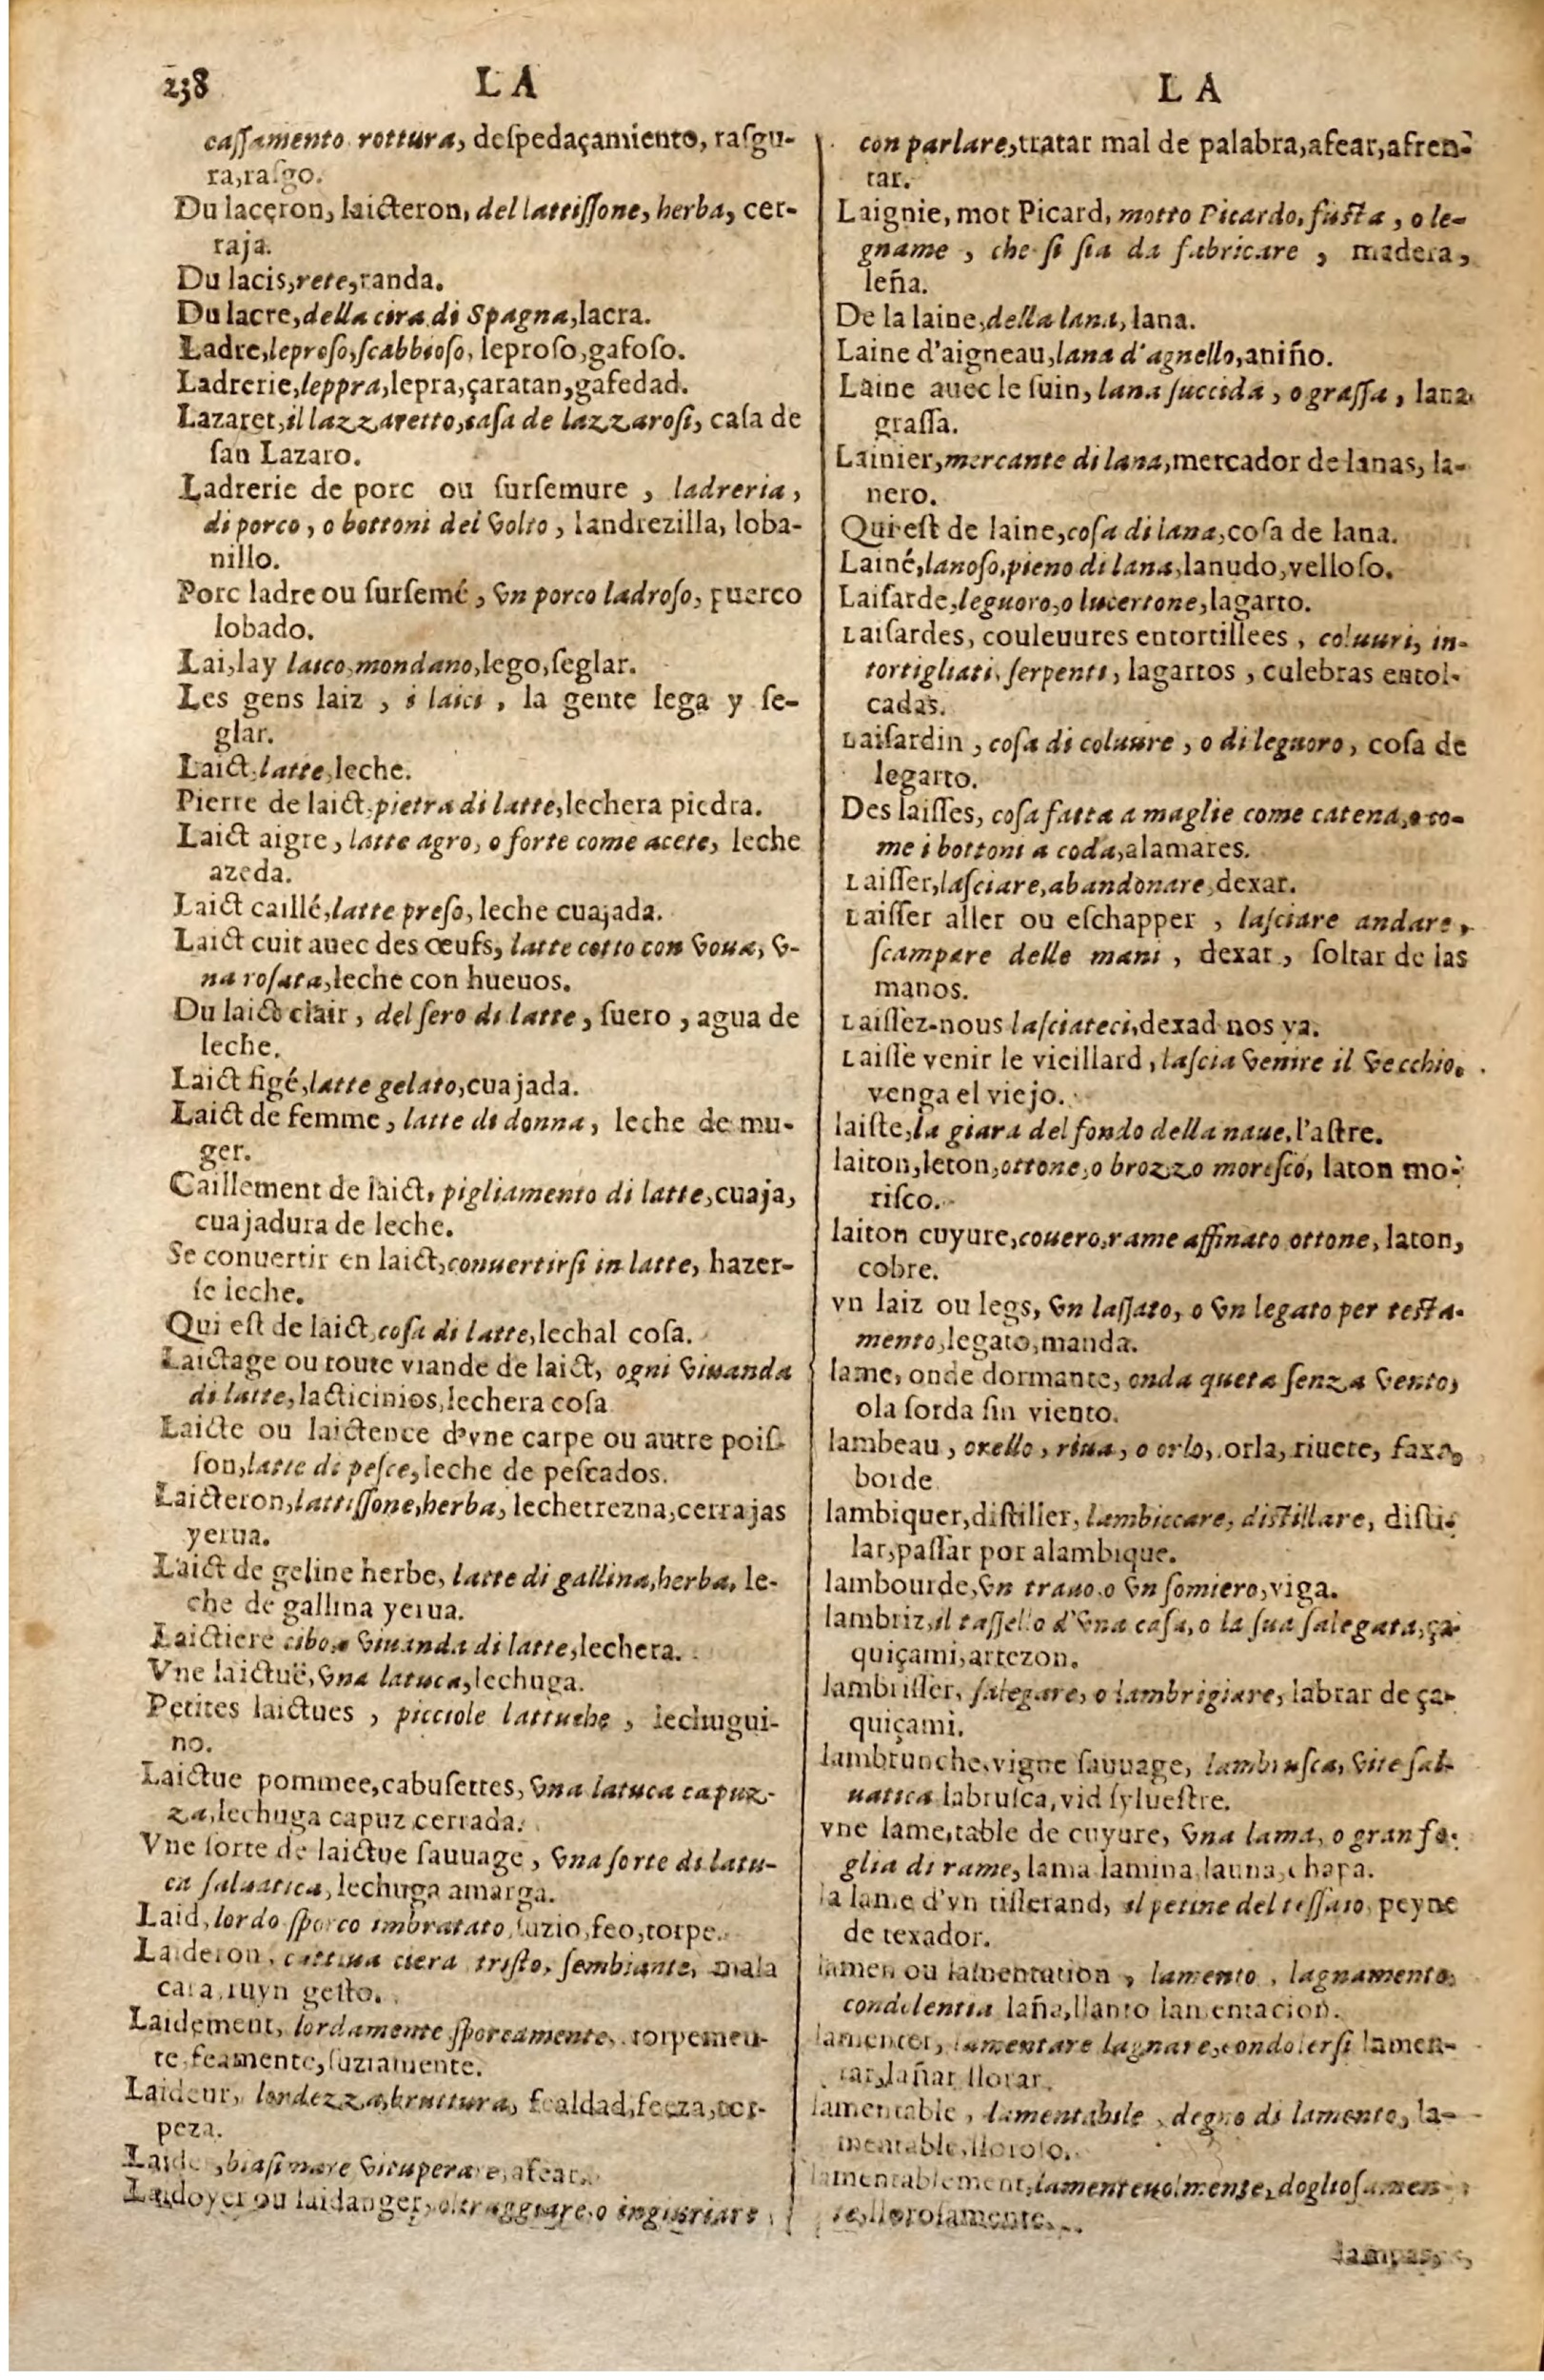 238 LA
LA
caſſamento rottura, deſpedaçamiento, raſgu-
ra,raſgo.
Du laceron, laicteron, del lattiſſone, herba, cer-
raja.
Du lacis,rete,randa.
Du lacre,della cira di Spagna,lacra.
Ladre,leproſo,ſcabbioſo, leproſo,gafoſo.
Ladrerie,leppra,lepra,çaratan,gafedad.
Lazaret,il lazzaretto,caſa de lazzaroſi, caſa de
ſan Lazaro.
Ladrerie de porc ou ſurſemure , ladreria,
di porco, o bottoni del volto, landrezilla, loba-
nillo.
Porc ladre ou ſurſemé, vn porco ladroſo, puerco
lobado.
Lai,lay laico,mondano,lego,ſeglar.
Les gens laiz , i laici , la gente lega y ſe-
glar.
Laict,latte,leche.
Pierre de laict,pietra di latte,lechera piedra.
Laict aigre, latte agro, o forte come acete, leche
azeda.
Laict caillé,latte preſo, leche cuajada.
Laict cuit auec des œufs, latte cotto con voua, v-
na roſata,leche con hueuos.
Du laict clair, del ſero di latte, ſuero , agua de
leche.
Laict figé,latte gelato,cuajada.
Laict de femme, latte di donna, leche de mu-
ger.
Caillement de laict, pigliamento di latte,cuaja,
cuajadura de leche.
Se conuertir en laict,conuertirſi in latte, hazer-
ſe leche.
Qui eſt de laict,coſa di latte,lechal coſa.
Laictage ou toute viande de laict, ogni viuanda
di latte,lacticinios,lechera coſa
Laicte ou laictence d'vne carpe ou autre poiſ-
ſon,latte di peſce,leche de peſcados.
Laicteron,lattiſſone,herba, lechetrezna,cerrajas
yerua.
Laict de geline herbe, latte di gallina,herba, le-
che de gallina yerua.
Laictiere cibo,o viuanda di latte,lechera.
Vne laictuë,vna latuca,lechuga.
Petites laictues , picciole lattuche , lechugui-
no.
Laictue pommee,cabuſettes, vna latuca capuz-
za,lechuga capuz cerrada.
Vne ſorte de laictue ſauuage , vna ſorte di latu-
ca ſaluatica,lechuga amarga.
Laid,lordo ſporco imbratato,ſuzio,feo,torpe.
Laideron, cattiua ciera triſto, ſembiante, mala
cara,ruyn geſto.
Laidement, lordamente ſporcamente, torpemen-
te,feamente,ſuziamente.
Laideur, lordezza,bruttura, fealdad,feeza,tor-
peza.
Laider,biaſimare vituperare,afear.
Laidoyer ou laidanger, oltraggiare,o ingiuriare
con parlare,tratar mal de palabra,afear,afren-
tar.
Laignie, mot Picard, motto Picardo, fuſta , o le-
gname , che ſi ſia da fabricare , madera,
leña.
De la laine,della lana,lana.
Laine d'aigneau,lana d'agnello,aniño.
Laine auec le ſuin, lana ſuccida , o graſſa , lana
graſſa.
Lainier,mercante di lana,mercador de lanas, la-
nero.
Qui eſt de laine,coſa di lana,coſa de lana.
Lainé,lanoſo,pieno di lana,lanudo,velloſo.
Laiſarde,leguoro,o lucertone,lagarto.
Laiſardes, couleuures entortillees , coluuri, in-
tortigliati, ſerpenti, lagartos , culebras entol-
cadas.
Laiſardin , coſa di coluure , o di leguoro, coſa de
legarto.
Des laiſſes, coſa fatta a maglie come catena,o co-
me i bottoni a coda,alamares.
Laiſſer,laſciare,abandonare,dexar.
Laiſſer aller ou eſchapper , laſciare andare,
ſcampare delle mani , dexar , ſoltar de las
manos.
Laiſſez-nous laſciateci,dexad nos ya.
Laiſſe venir le vieillard, laſcia venire il vecchio,
venga el viejo.
laiſte,la giara del fondo della naue,l'aſtre.
laiton,leton,ottone,o brozzo moreſco, laton mo-
riſco.
laiton cuyure,couero,rame affinato ottone, laton,
cobre.
vn laiz ou legs, vn laſſato, o vn legato per teſta-
mento,legato,manda.
lame, onde dormante, onda queta ſenza vento,
ola ſorda ſin viento.
lambeau , orello, riua, o orlo, orla, riuete, faxa,
borde
lambiquer,diſtiller, lambiccare, diſtillare, diſti-
lar,paſſar por alambique.
lambourde,vn trauo o vn ſomiero,viga.
lambriz,il taſſello d'vna caſa, o la ſua ſalegata,ça-
quiçami,artezon.
lambriſſer, ſalegare, o lambrigiare, labrar de ça-
quiçami.
lambrunche,vigne ſauuage, lambruſca, vite ſal-
uatica labruſca,vid ſylueſtre.
vne lame,table de cuyure, vna lama, o gran fo-
glia di rame, lama lamina launa,chapa.
la lame d'vn tiſſerand, il petine del teſſaro, peyne
de texador.
lamen ou lamentation , lamento , lagnamento
condolentia laña,llanto lamentacion.
lamenter, lamentare lagnare,condolerſi lamen-
tar,lañar llorar.
lamentable , lamentabile , degno di lamento, la-
mentable,lloroſo.
lamentablement,lamenteuolmente,doglioſamen-
te,lloroſamente.